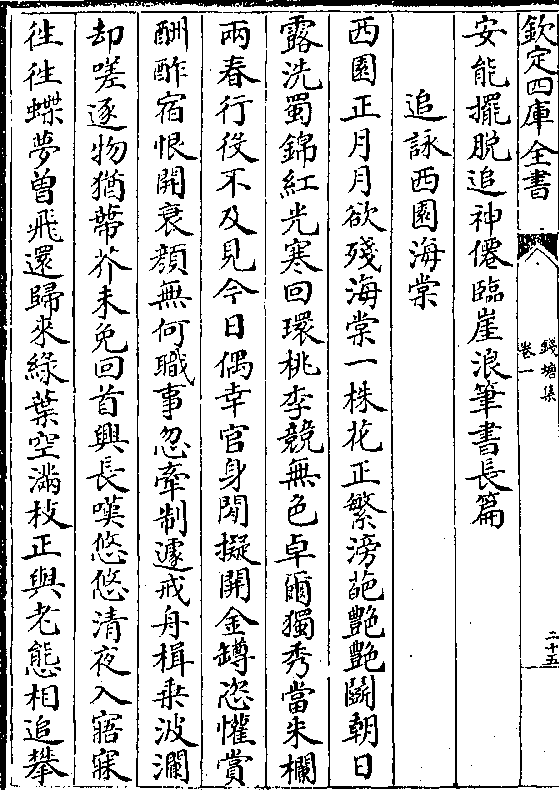 欽定四庫全書
錢塘集
卷一
二十五
安能擺脫追神僊臨崖浪筆書長篇
追詠西園海棠
西園正月月欲殘海棠一株花正繁滂葩艷艷鬭朝日
露洗蜀錦紅光寒回環桃李競無色卓爾獨秀當朱欄
兩春行役不及見今日偶幸官身閒擬開金罇恣懽賞
酬酢宿恨開衰顔無何職事忽牽制遽戒舟楫乗波瀾
却嗟逐物猶蔕芥未免回首興長嘆悠悠清夜入寤寐
徃徃蝶夢曽飛還歸來緑葉空滿枝正與老態相追攀